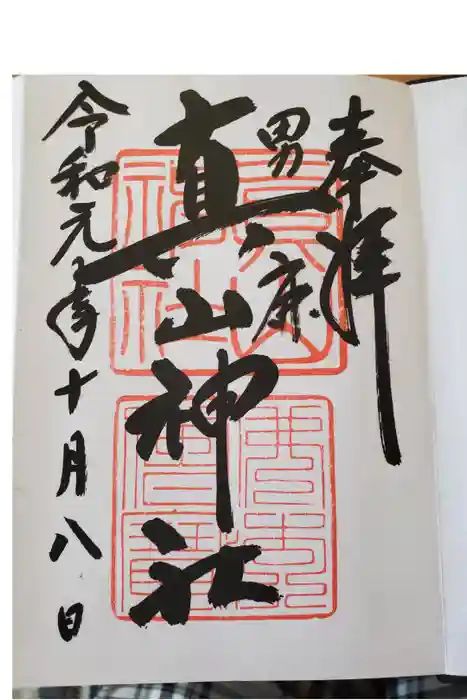 奉拝
男鹿
真山神社
令和元年十月八日
真山
神社